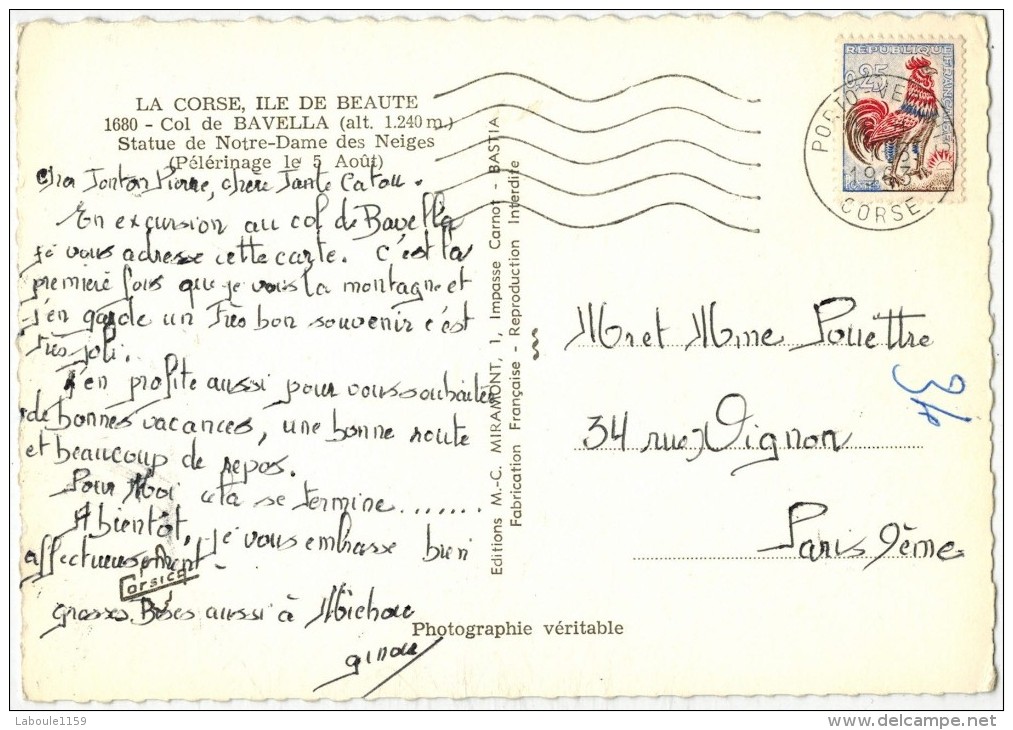 LA CORSE, ILE DE BEAUTE
1680 - Col de BAVELLA (alt. 1.240 m.)
Statue de Notre-Dame des Neiges
(Pélérinage le 5 Août)
Cher Tonton Pierre, chère Tante Catou.
En excursion au col de Bavella
je vous adresse cette carte. C'est la
première fois que je vois la montagne et
j'en garde un très bon souvenir c'est
très joli.
J'en profite aussi pour vous souhaiter
de bonnes vacances, une bonne route
et beaucoup de repos.
Pour Moi cela se termine.......
A bientôt, je vous embrasse bien
affectueusement.
Corsica
grosses Bises aussi à Michou
ginou
Editions M.-C. MIRAMONT, 1, Impasse Carnot - BASTIA
Fabrication Française - Reproduction Interdite
Photographie véritable
REPUBLIQUE FRANÇAISE
0,25
PORTO-VE
1963
CORSE
Mr et Mme Pouettre
34 rue Vignon
Paris 9ème
34
Laboule1159
delcampe.net